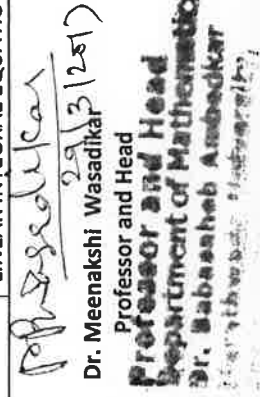 29/3/2017)
Dr. Meenakshi Wasadikar
Professor and Head
Professor and Head
Department of Mathematic
Dr. Babasaheb Ambedkar
Marathwada University